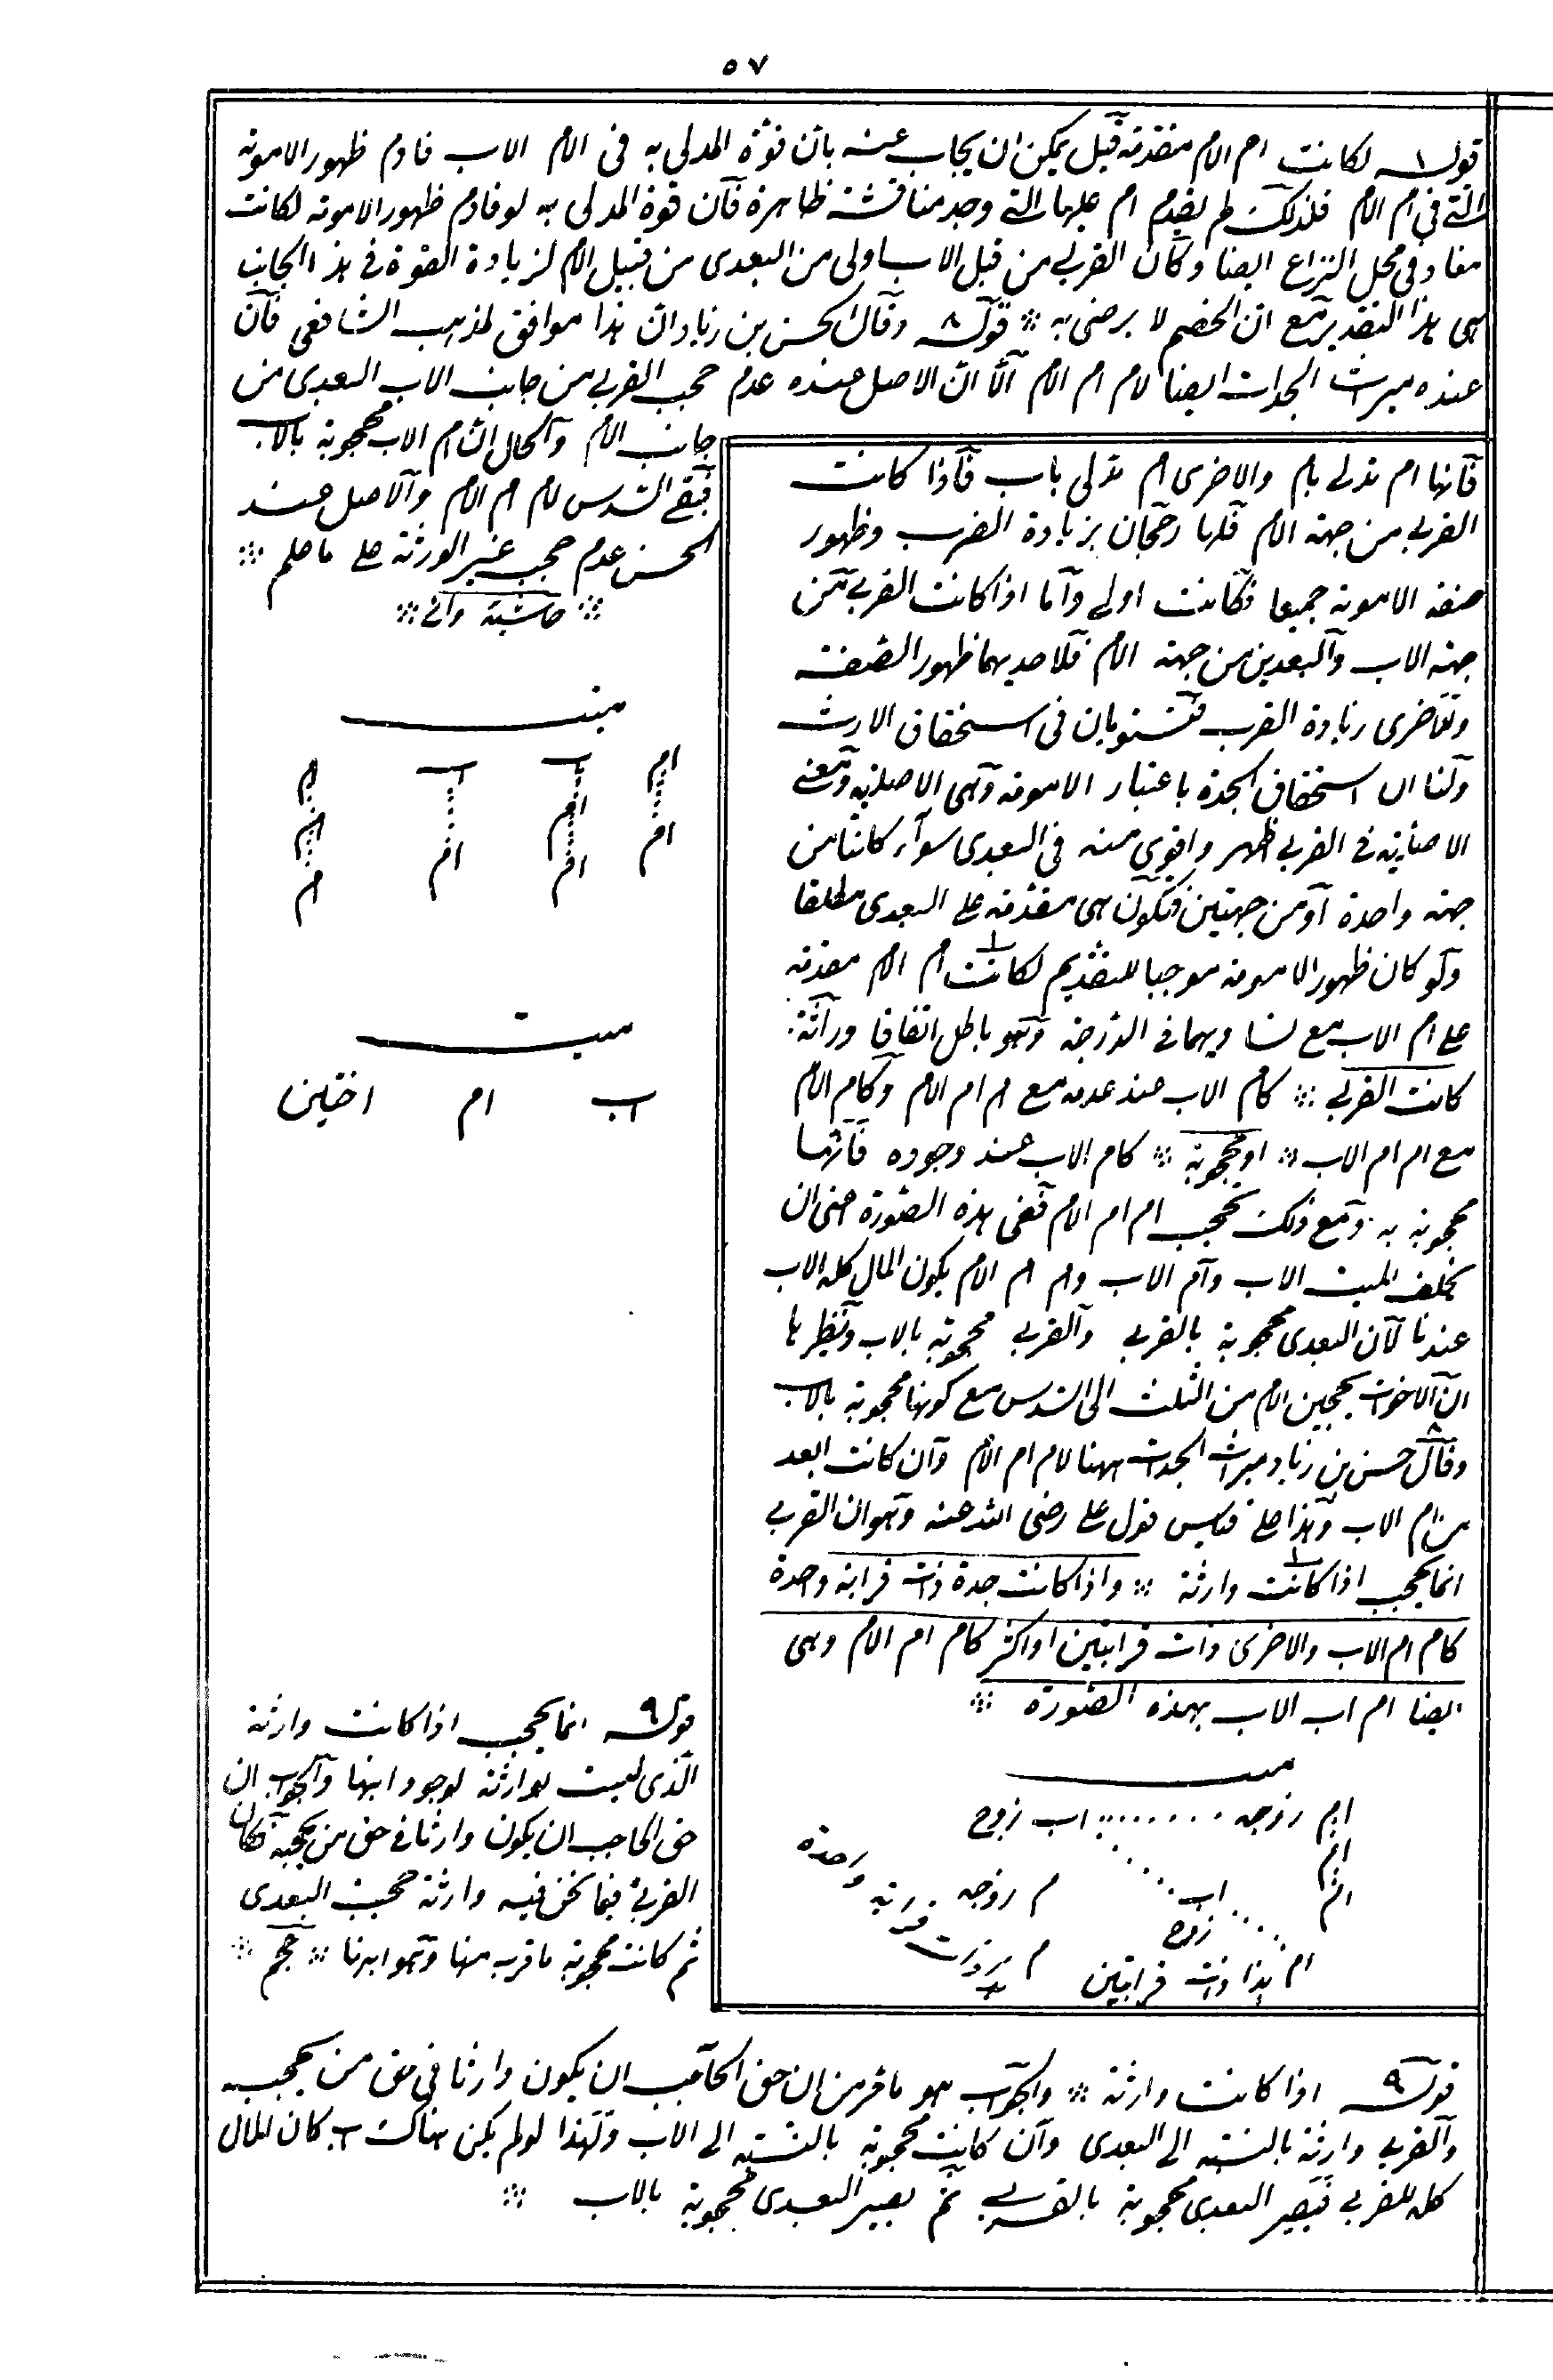 ٥٧
قوله ١ لكانت ام الام مقدمة قيل يمكن ان يجاب عنه بان قوة المدلى به فى الام الاب قاوم ظهور الامومة
التى فى ام الام فلذلك لم يقدم ام عليها التى وجد مناقشة ظاهرة فان قوة المدلى به لو قاوم ظهور الامومة لكانت
مقاو فى محل النزاع ايضا وكان القربى من قبل الاب اولى من البعدى من قبيل الام لزيادة القوة فى هذا الجانب
هى هذا التقدير مع ان الخصم لا يرضى به قوله ٨ وقال الحسن بن زياد ان هذا موافق لمذهب الشافعى فان
عنده ميراث الجدات ايضا لام ام الام الا ان الاصل عنده عدم حجب القربى من جانب الاب البعدى من
جانب الام والحال ان ام الاب محجوبة بالاب
فبقى السدس لام ام الام والاصل عند
الحسن عدم حجب غير الورثة على ما علم
حاشية وانى
ميت
ام اب اب ام
ام ام ام ام
ام ام
ميت
اب ام اختين
فانها ام تدلى بام والاخرى ام تدلى باب فاذا كانت
القربى من جهة الام فلها رجحان بزيادة القرب وظهور
صفة الامومة جميعا فكانت اولى واما اذا كانت القربى من
جهة الاب والبعدى من جهة الام فلاحديهما ظهور الصفة
وللاخرى زيادة القرب فتستويان فى استحقاق الارث
ولنا ان استحقاق الجدة باعتبار الامومة وهى الاصلية ومعنى
الاصلية فى القربى اظهر واقوى منه فى البعدى سواء كانتا من
جهة واحدة او من جهتين فتكون هى مقدمة على البعدى مطلقا
ولو كان ظهور الامومة موجبا للتقديم لكانت ١ ام الام مقدمة
على ام الاب مع تساويهما فى الدرجة وهو باطل اتفاقا وراثة
كانت القربى كام الاب عند عدمه مع ام ام الام وكام الام
مع ام ام الاب او محجوبة كام الاب عند وجوده فانها
محجوبة به ومع ذلك تحجب ام ام الام ففى هذه الصورة اعنى ان
يخلف الميت الاب وام الاب وام ام الام يكون المال كله للاب
عندنا لان البعدى محجوبة بالقربى والقربى محجوبة بالاب ونظيرها
ان الاخوات يحجبن الام من الثلث الى السدس مع كونها محجوبة بالاب
وقال ٨ حسن بن زياد ميراث الجدات ههنا لام ام الام وان كانت ابعد
من ام الاب وهذا على قياس قول على رضى الله عنه وهو ان القربى
انما تحجب اذا كانت وارثة واذا كانت جدة ذات قرابة واحدة
كام ام الاب والاخرى ذات قرابتين او اكثر كام ام الام وهى
ايضا ام اب الاب بهذه الصورة
ميت
ام زوجه اب زوج
ام
ام اب زوج ام زوجه
ام هذا ذات قرابتين ام هذه ذات قرابة واحدة
قوله ٩ انما تحجب اذا كانت وارثة
الذى ليست بوارثة لوجود ابنها والجواب ان
حق الحاجب ان يكون وارثا فى حق من يحجبه فكان
القربى فيما نحن فيه وارثة حجبت البعدى
ثم كانت محجوبة ما قرب منها وهو ابنها حجم
قوله ٩ اذا كانت وارثة والجواب هو ما قر من ان حق الحاجب ان يكون وارثا فى حق من يحجبه
والقربى وارثة بالنسبة الى البعدى وان كانت محجوبة بالنسبة الى الاب ولهذا لو لم يكن هناك اب كان للمال
كله للقربى فيصير البعدى محجوبة بالقربى ثم يصير البعدى محجوبة بالاب